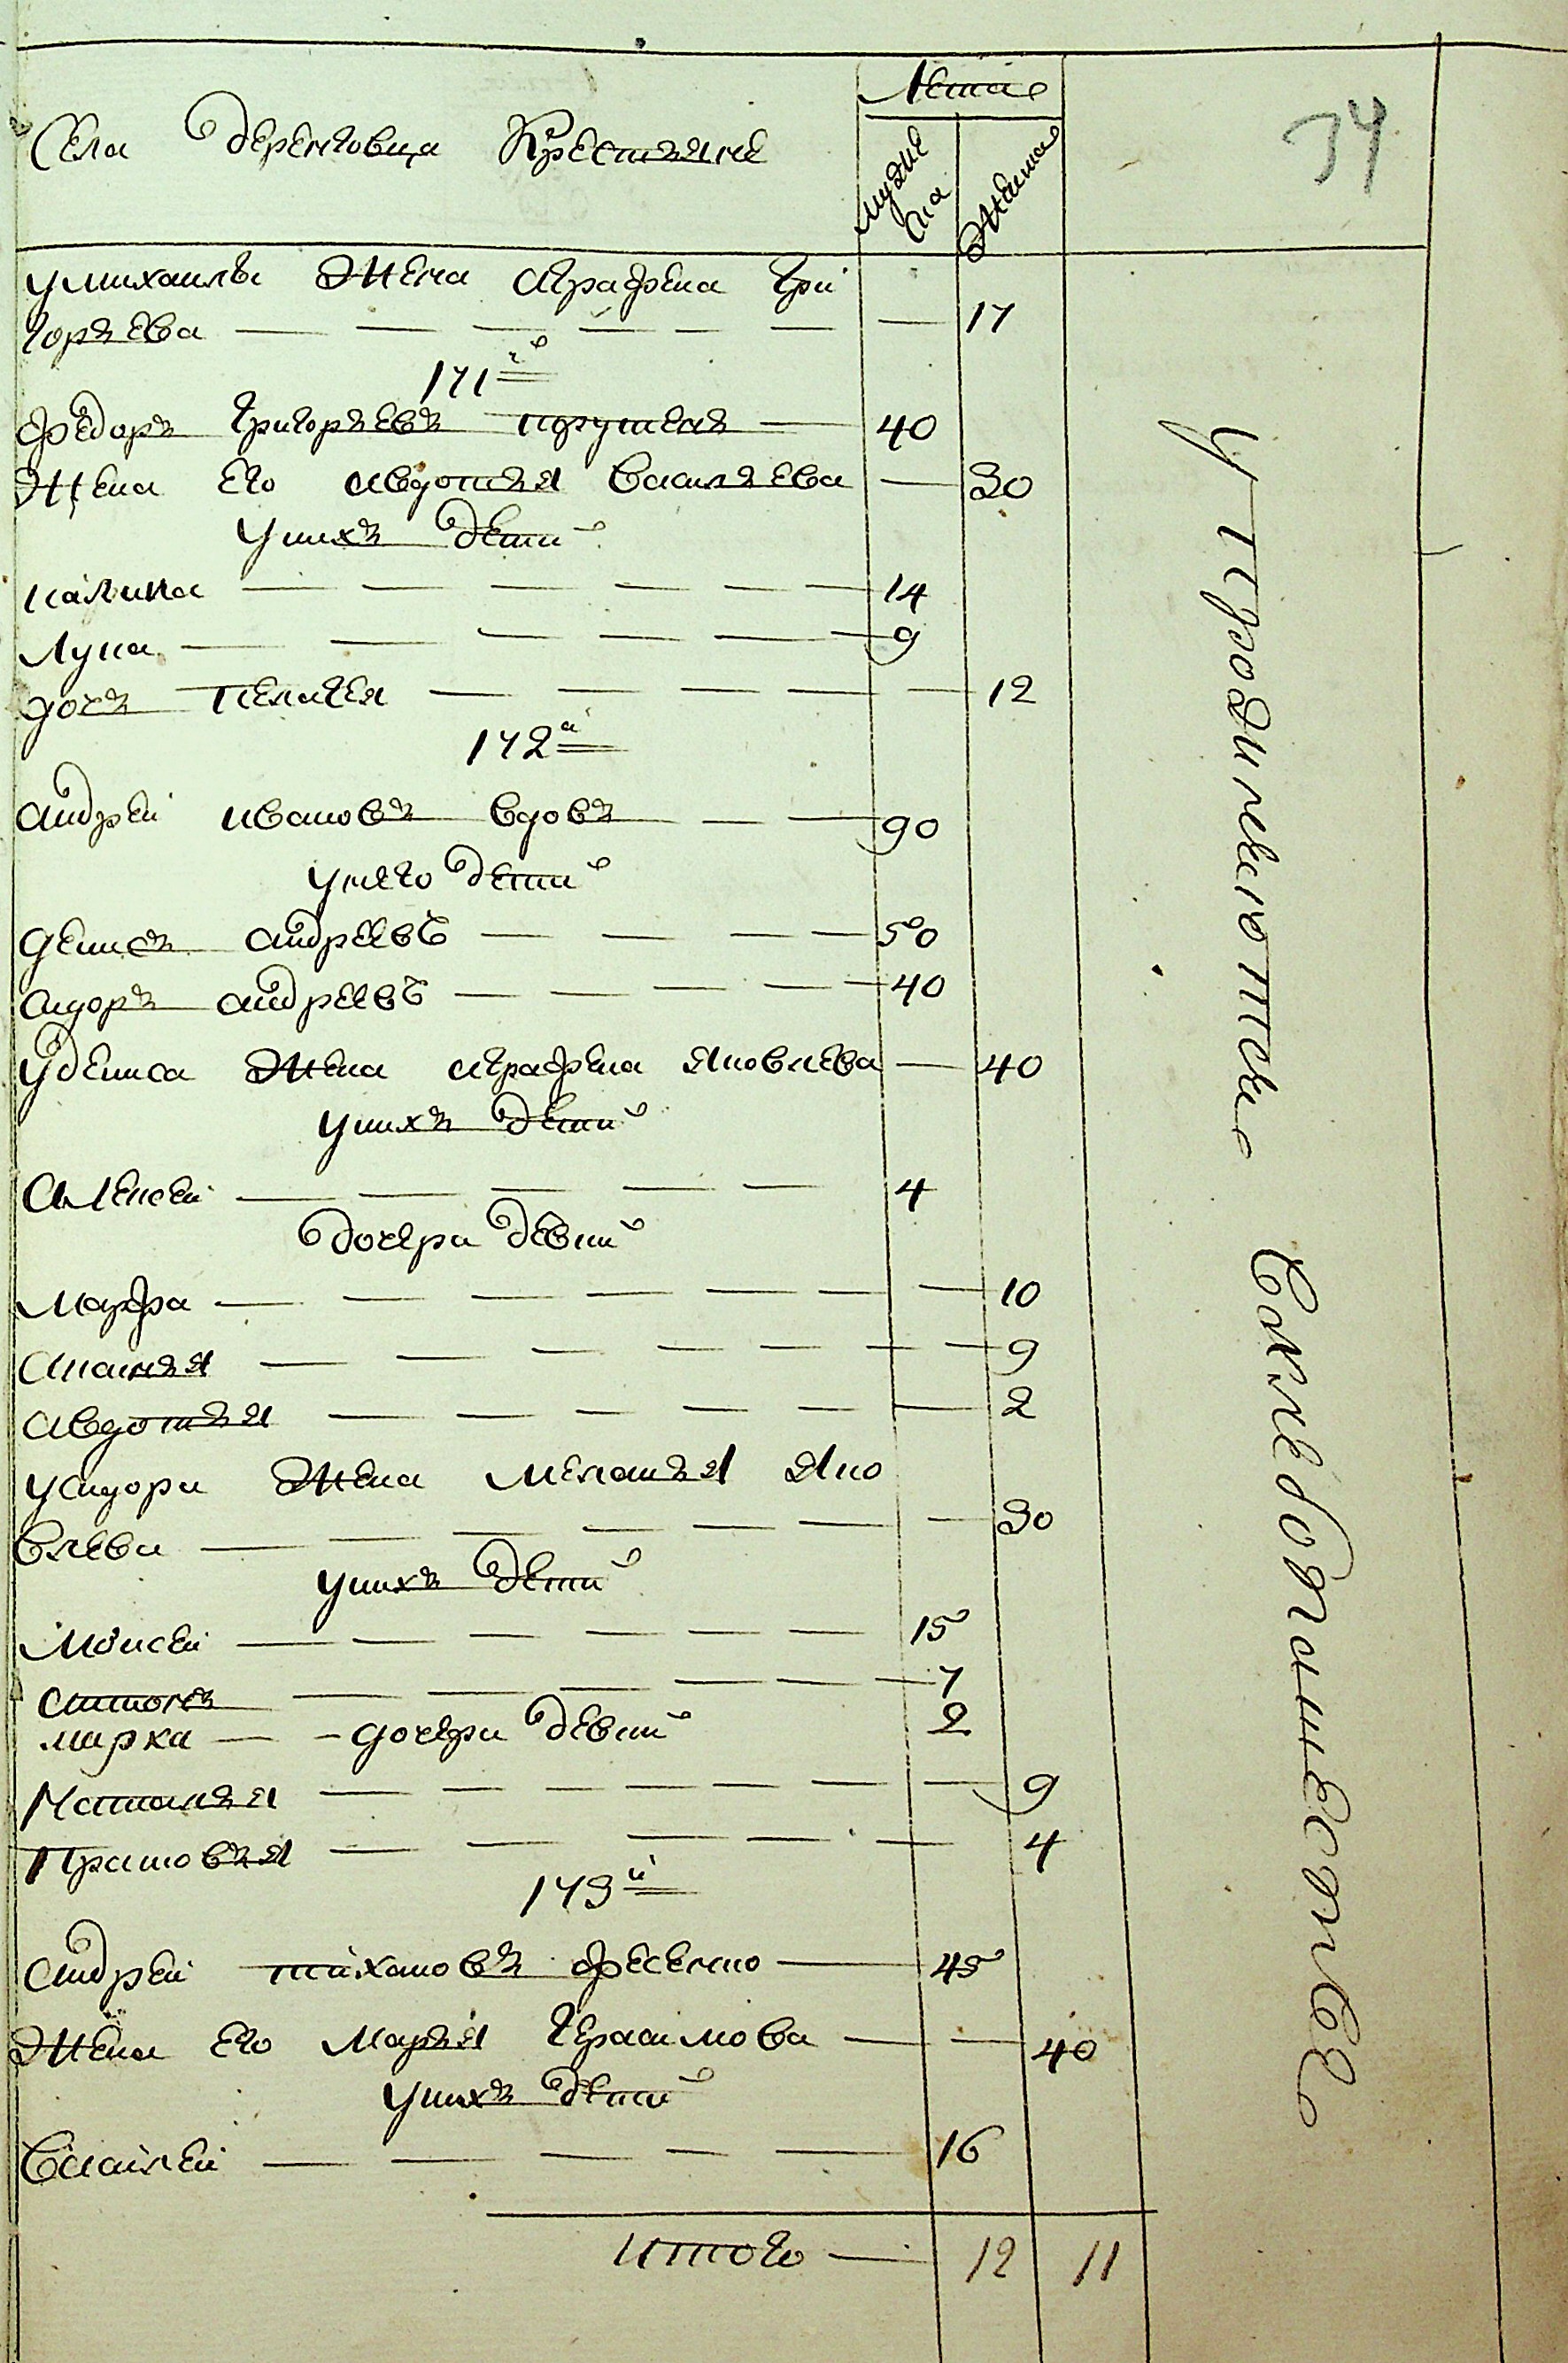 Лета
34
Села Деренковца Крестьяне
мужеска
женска
у михаилы Жена Аграфена Гри
горьева — 17
171го
федоръ Григорьевъ — 40
Жена его Авдотья Васильева — 30
у нихъ Дети
калина — 14
Лука — 9
дочь пелагея — 12
172а
Андрей ивановъ вдовъ — 90
у него Дети
денисъ Андреевъ — 50
сидоръ Андреевъ — 40
у Дениса Жена Аграфена Яковлева — 40
у нихъ Дети
Алексей — 4
Дочери Девки
Марфа — 10
Анания — 9
Авдотья — 2
у сидора Жена Мелания Яко
влева — 30
у нихъ Дети
Моисей — 15
Антонъ — 7
марка — 2
дочери Девки
Наталья — 9
Прасковья — 4
173й
Андрей тихановъ фесенко — 45
Жена его Марья Герасимова — 40
у нихъ Дети
Василей — 16
итого — 12 11
Упродилеваются
Вхлебопашестве